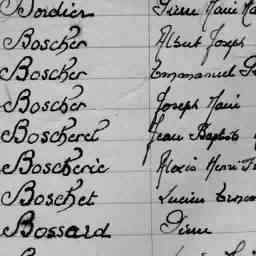 Bordier Pierre Marie
Boscher Albert Joseph
Boscher Emmanuel
Boscher Joseph Marie
Boscherel Jean Baptiste
Boscherie Alexis Henri
Boschet Lucien
Bossard Pierre